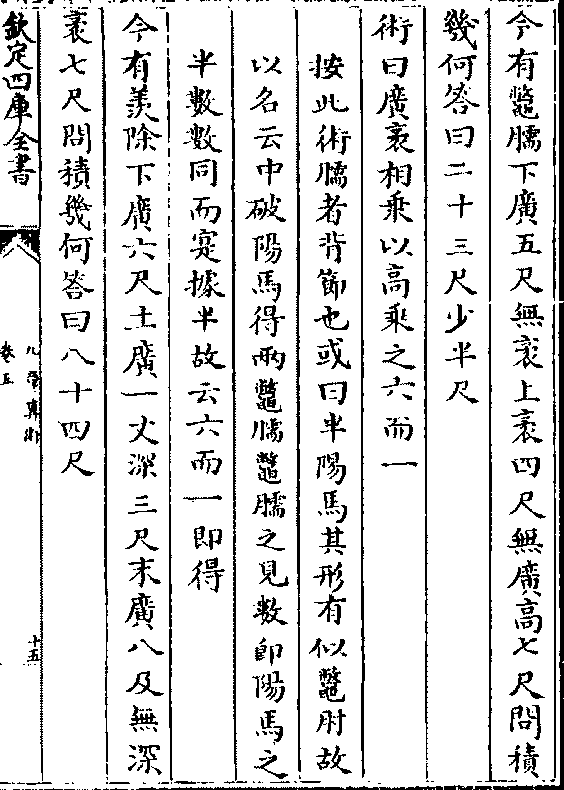 今有鼈臑下廣五尺無袤上袤四尺無廣高七尺問積
幾何荅曰二十三尺少半尺
術曰廣袤相乗以高乗之六而一
按此術臑者背節也或曰半陽馬其形有似鼈肘故
以名云中破陽馬得兩鼈臑鼈臑之見數即陽馬之
半數數同而寔據半故云六而一即得
今有羡除下廣六尺土廣一丈深三尺末廣八及無深
袤七尺問積幾何荅曰八十四尺
欽定四庫全書
九章算術
卷五
十五